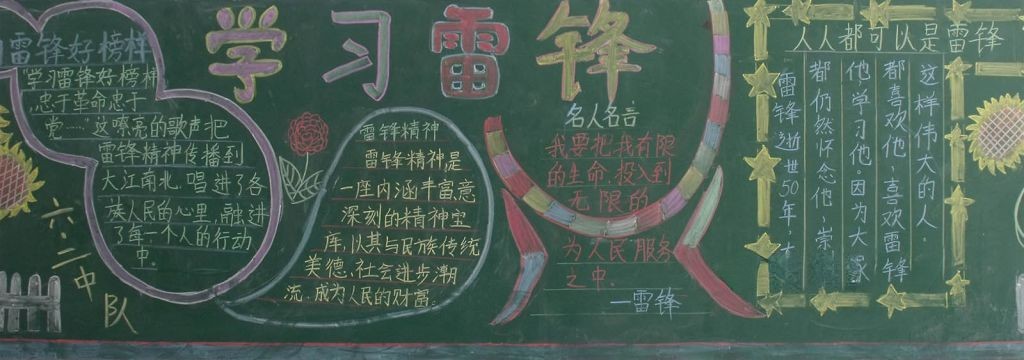 学习雷锋
雷锋好榜样
"学习雷锋好榜神
忠于革命忠于
党……"这嘹亮的歌声把
雷锋精神传播到
大江南北,唱进了各
族人民的心里,融进
了每一个人的行动
中.
六.二中队
雷锋精神
雷锋精神,是
一座内涵丰富,意
深刻的精神宝
库,以其与民族传统
美德、社会进步潮
流.成为人民的财富.
名人名言
我要把我有限
的生命,投入到
无限的
为人民服务
之中.
—雷锋
人人都可以是雷锋
这样伟大的人.
都喜欢他、喜欢雷锋
他学习他.因为大家
都仍然怀念他、崇
雷锋逝世50年,大